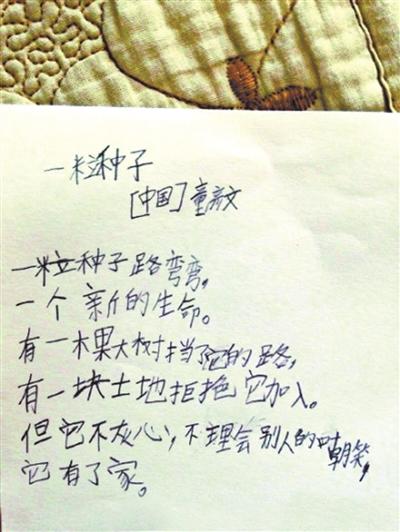 一粒种子
[中国]童文
一粒种子路弯弯,
一个新的生命。
有一棵大树挡了它的路,
有一块土地拒绝它加入。
但它不灰心,不理会别人的嘲笑,
它有了家。